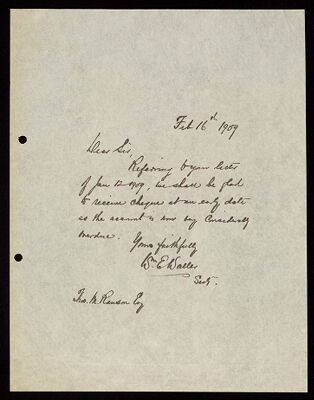 Feb 16th 1909
Dear Sir,
Referring to your letter
of Jan 12 1909, we shall be glad
to receive cheque at an early date
as the account is now very considerably
overdue.
Yours faithfully
Wm E. Waller
Secty.
Thos. M. Rawson Esq